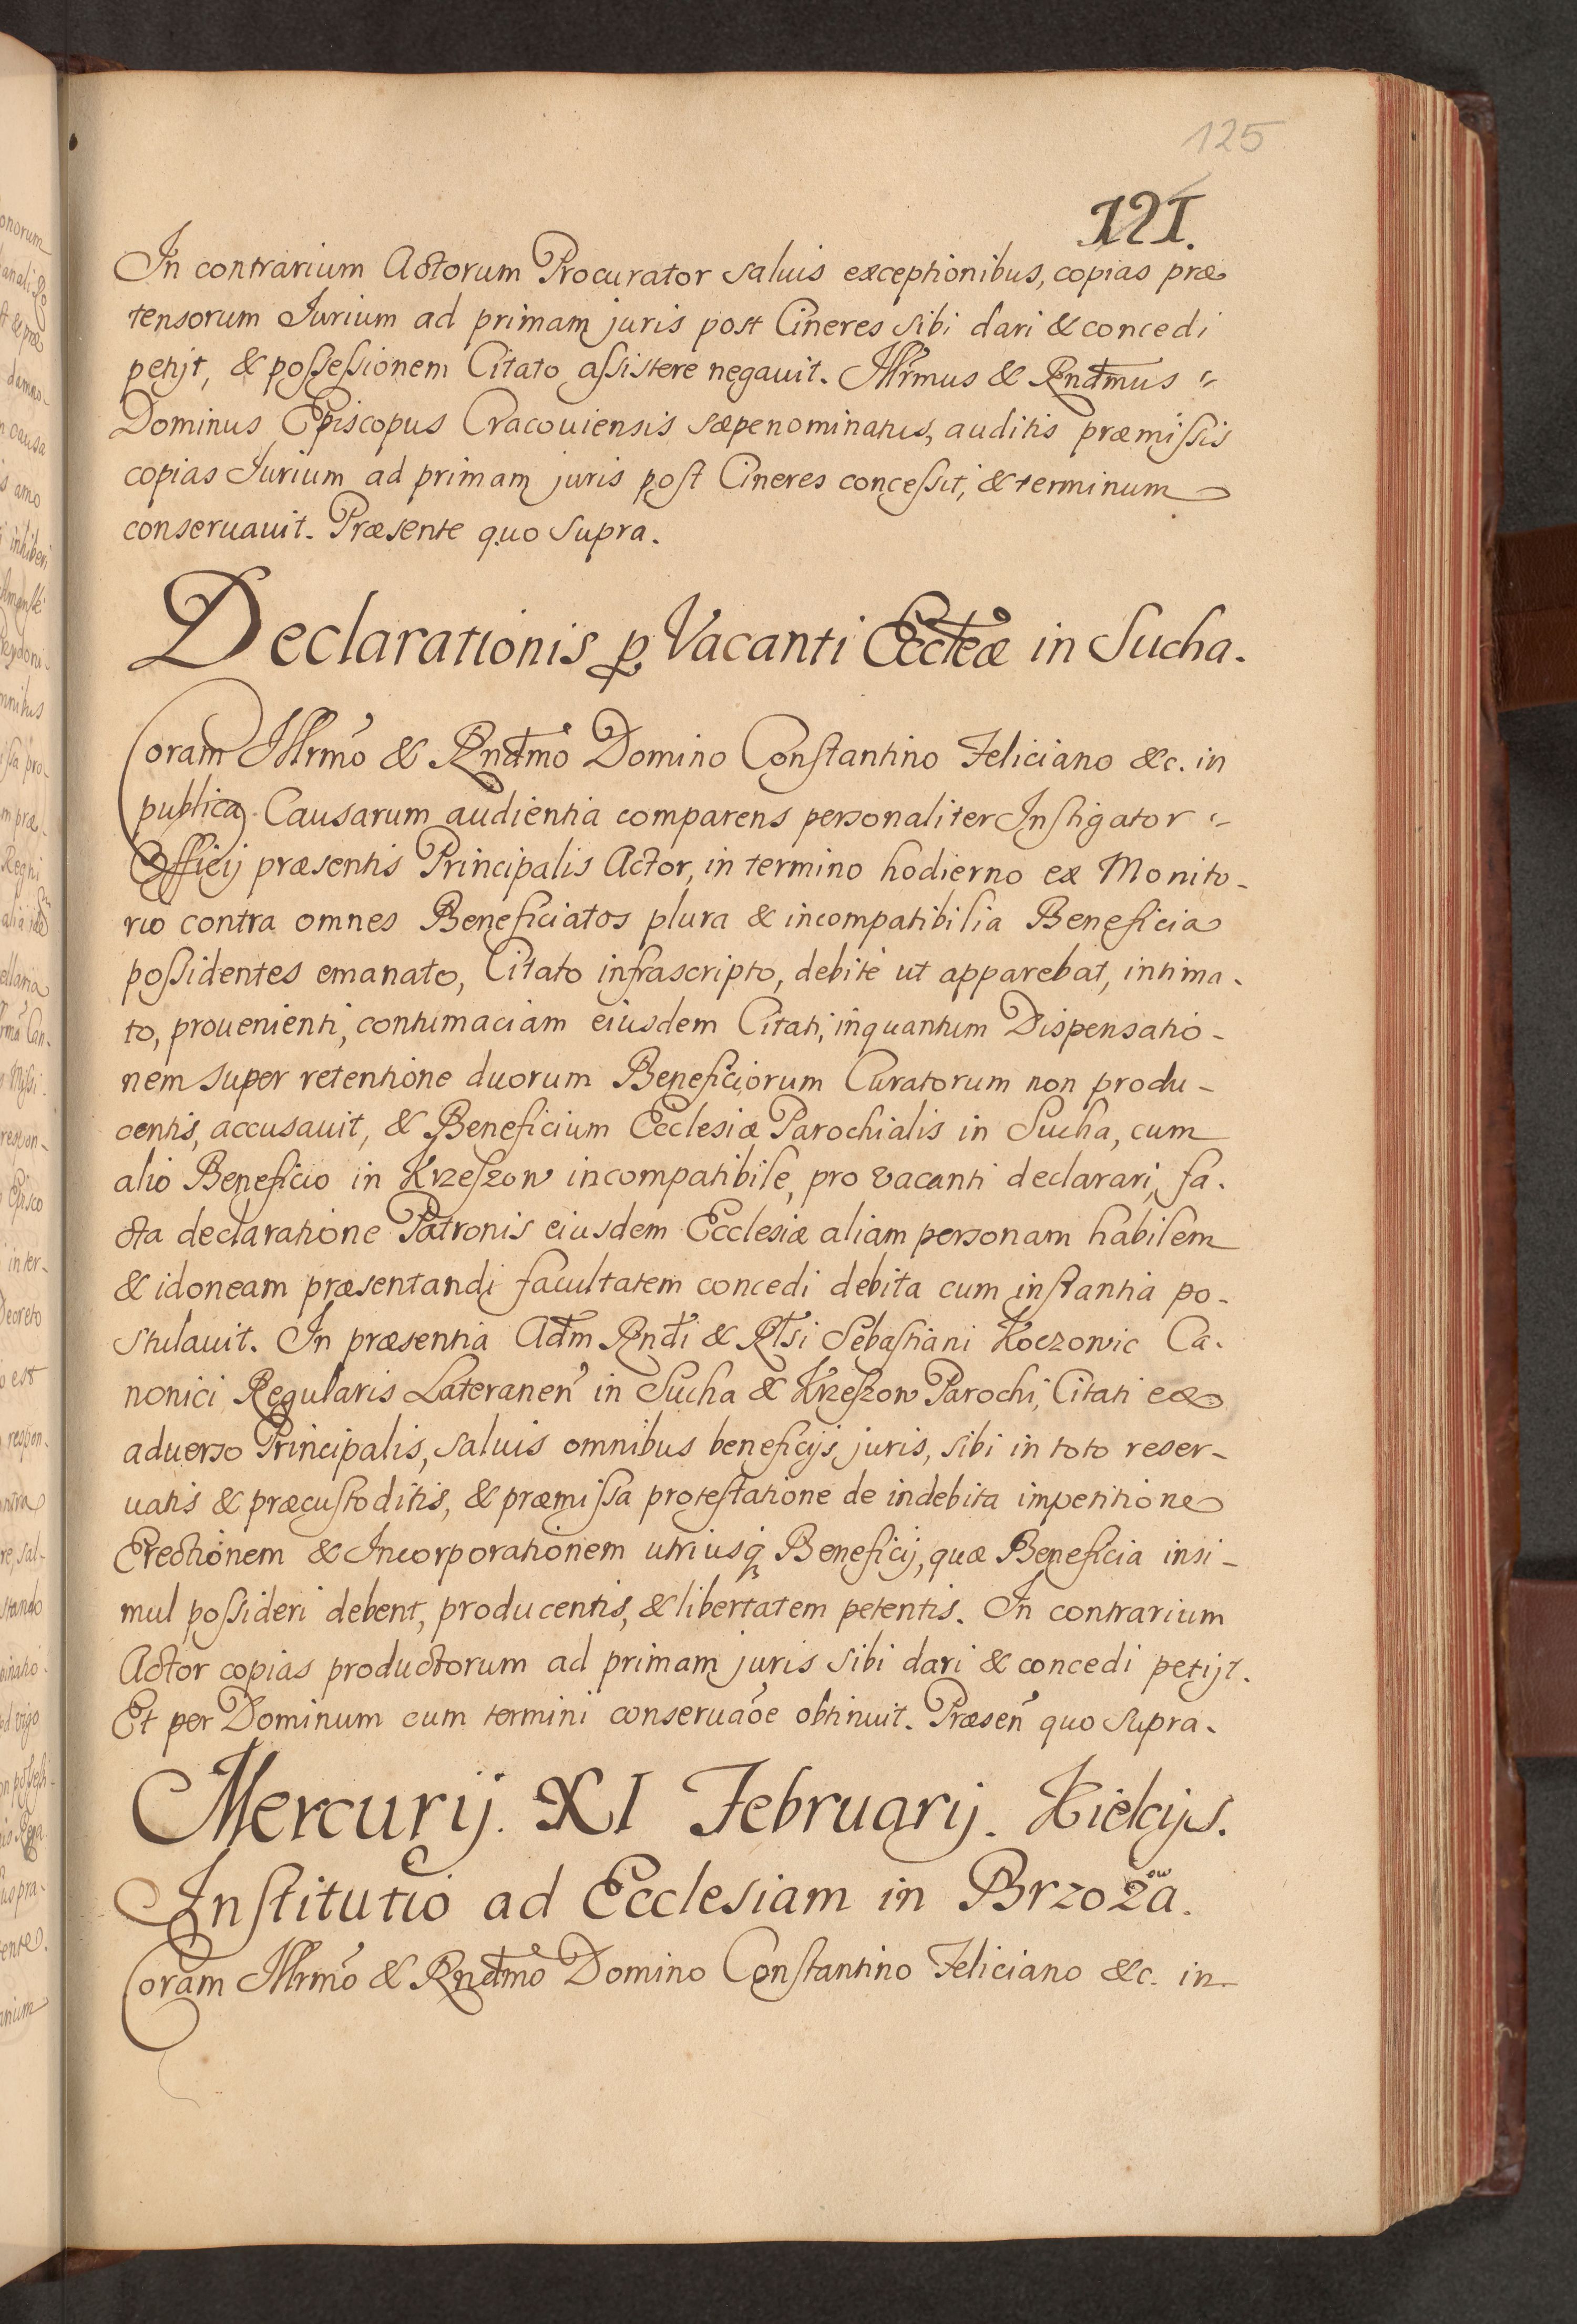 125
121.
In contrarium Actorum Procurator saluis exceptionibus, copias præ
tensorum Iurium ad primam juris post Cineres sibi dari & concedi
petijt, & possessionem Citato assistere negauit. Illrmus & Rndmus
Dominus Episcopus Cracouiensis sæpenominatus, auditis præmissis
copias Iurium ad primam juris post Cineres concessit, & terminum
conseruauit. Præsente quo supra.
Declarationis p Vacanti Eccleæ in Sucha.
Coram Illrmo & Rndmo Domino Constantino Feliciano &c. in
publica Causarum audientia comparens personaliter Instigator
Officij præsentis Principalis Actor, in termino hodierno ex Monito-
rio contra omnes Beneficiatos plura & incompatibilia Beneficia
possidentes emanato, Citato infrascripto, debitè ut apparebat, intima-
to, prouenienti, contumaciam eiusdem Citati, inquantum Dispensatio-
nem super retentione duorum Beneficiorum Curatorum non produ-
centis, accusauit, & Beneficium Ecclesiæ Parochialis in Sucha, cum
alio Beneficio in Krzeszow incompatibile, pro vacanti declarari, fa-
cta declaratione Patronis eiusdem Ecclesiæ aliam personam habilem
& idoneam præsentandi facultatem concedi debita cum instantia po-
stulauit. In præsentia Adm Rndi & Rlsi Sebastiani Koczowic Ca-
nonici Regularis Lateranen in Sucha & Krzeszow Parochi, Citati ex
aduerso Principalis, saluis omnibus beneficijs juris, sibi in toto reser-
uatis & præcustoditis, & præmissa protestatione de indebita impetitione
Erectionem & Incorporationem utriusq Beneficij, quæ Beneficia insi-
mul possideri debent, producentis, & libertatem petentis. In contrarium
Actor copias productorum ad primam juris sibi dari & concedi petijt.
Et per Dominum cum termini conseruaõe obtinuit. Præsen quo supra.
Mercurij. XI Februarij. Kielcijs.
Institutio ad Ecclesiam in Brzozowa.
Coram Illrmo & Rndmo Domino Constantino Feliciano &c. in